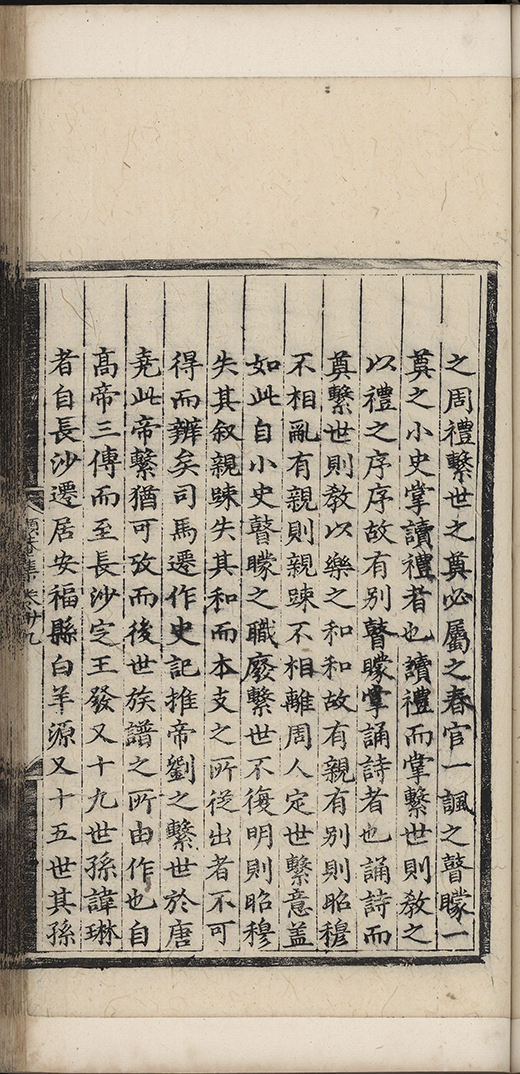 之周禮繫世之奠必屬之春官一諷之瞽矇一
奠之小史掌讀禮者也讀禮而掌繫世則教之
以禮之序序故有別瞽矇掌誦詩者也誦詩而
奠繫世則教以樂之和和故有親有別則昭穆
不相亂有親則親踈不相離周人定世繫意盖
如此自小史瞽矇之職廢繫世不復明則昭穆
失其叙親踈失其和而本支之所從出者不可
得而辨矣司馬遷作史記推帝劉之繫世於唐
堯此帝繫猶可攷而後世族譜之所由作也自
髙帝三傳而至長沙定王發又十九世孫諱琳
者自長沙遷居安福縣白羊源又十五世其孫
集 卷廿九